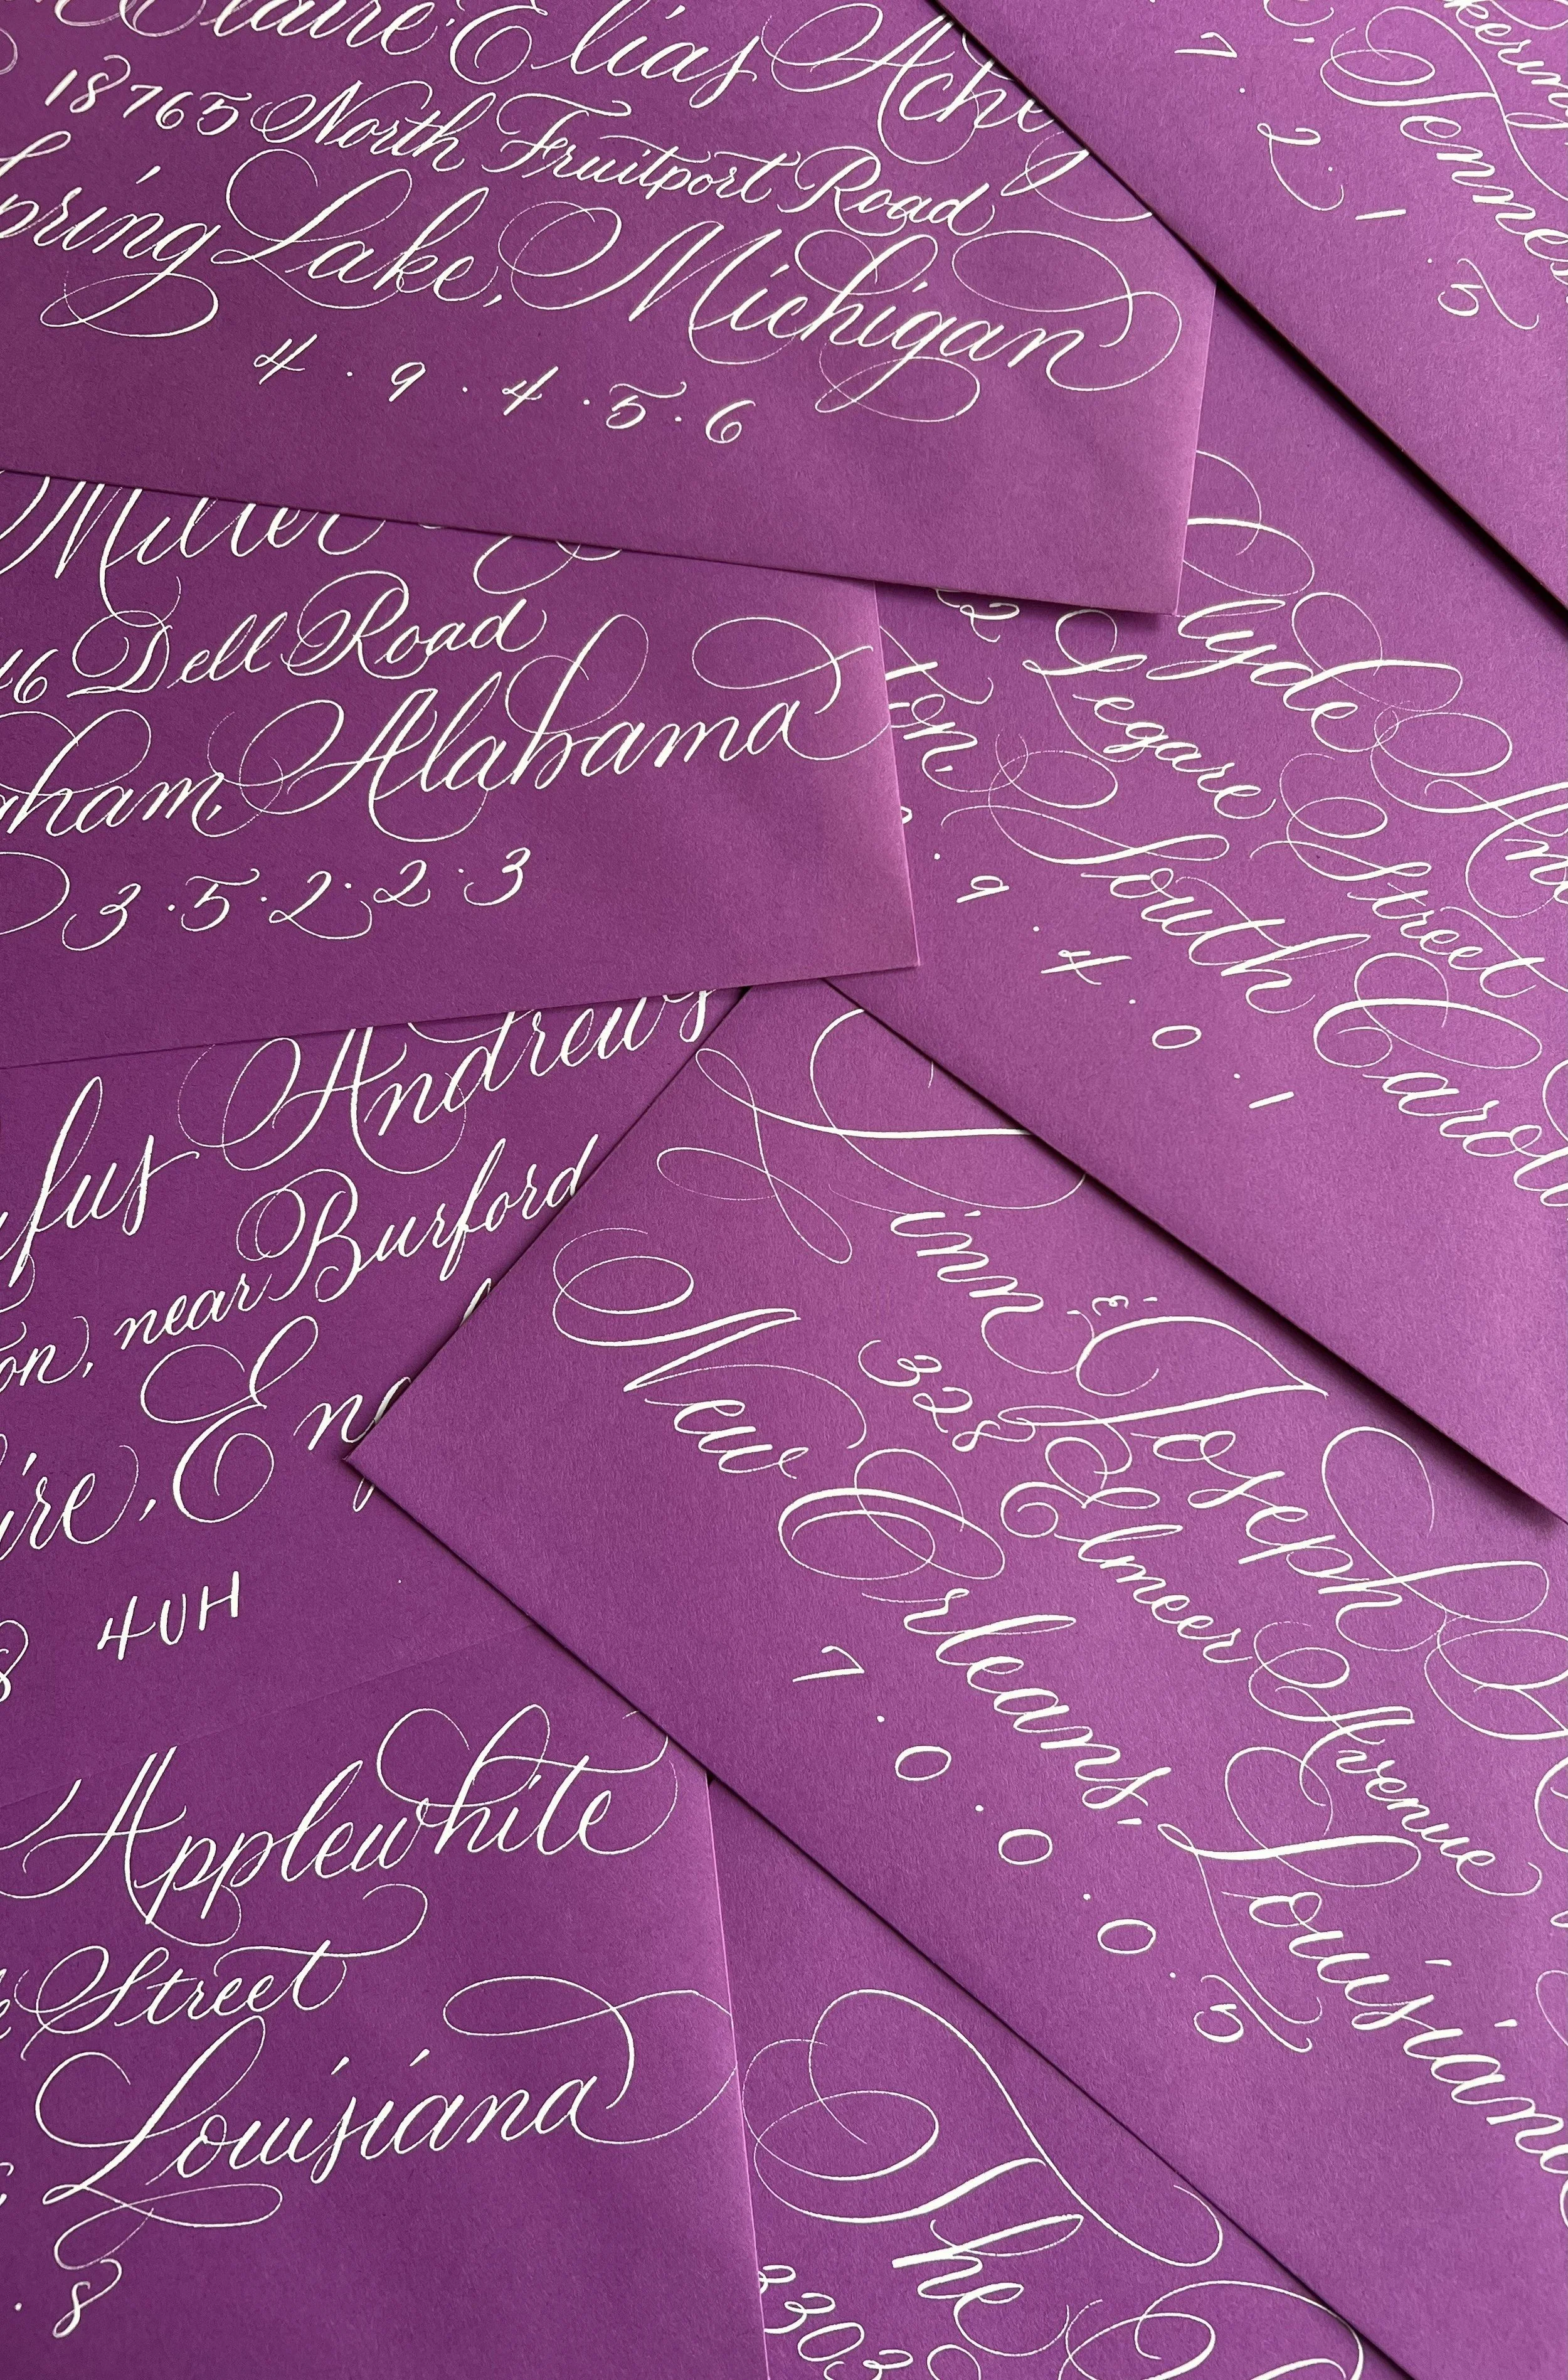 Claire Elias Ache
18765 North Fruitport Road
Spring Lake, Michigan
4·9·4·5·6
7·2·1·5
Tennes
Miller
46 Dell Road
gham, Alabama
3·5·2·2·3
Clyde
2 Legare Street
ton, South Carol
9·4·0·1
ufus Andrews
on, near Burford
ire, Eng
8 4UH
Linn & Joseph
328 Elmeer Avenue
New Orleans, Louisiana
7·0·0·0·5
Applewhite
Street
Louisiana
·8
The
3303